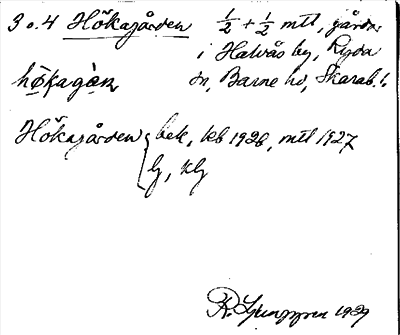 3 o. 4 Hökagården ½ + ½ mtl, gårdar
i Halvås by, Ryda
høkagàn sn, Barne hd, Skarab. l.
Hökagården bek, kb 1926, mtl 1927
lj, klj
R. Ljunggren 1929